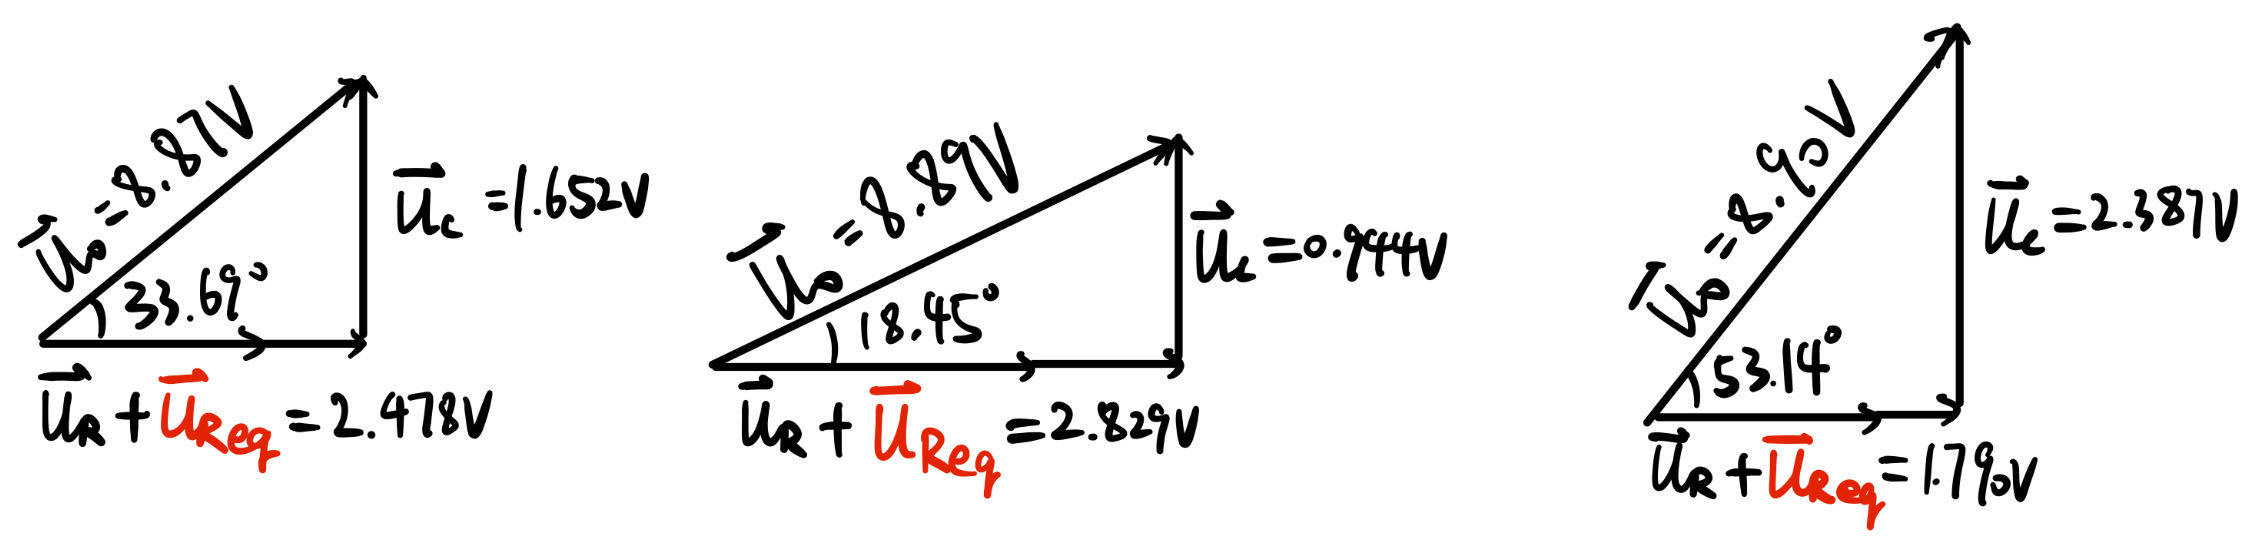 U⃗₀=8.87V
U⃗c=1.652V
33.69°
U⃗R+U⃗Req=2.478V
U⃗₀=8.89V
U⃗c=0.944V
18.45°
U⃗R+U⃗Req=2.829V
U⃗₀=8.90V
U⃗c=2.387V
53.14°
U⃗R+U⃗Req=1.790V